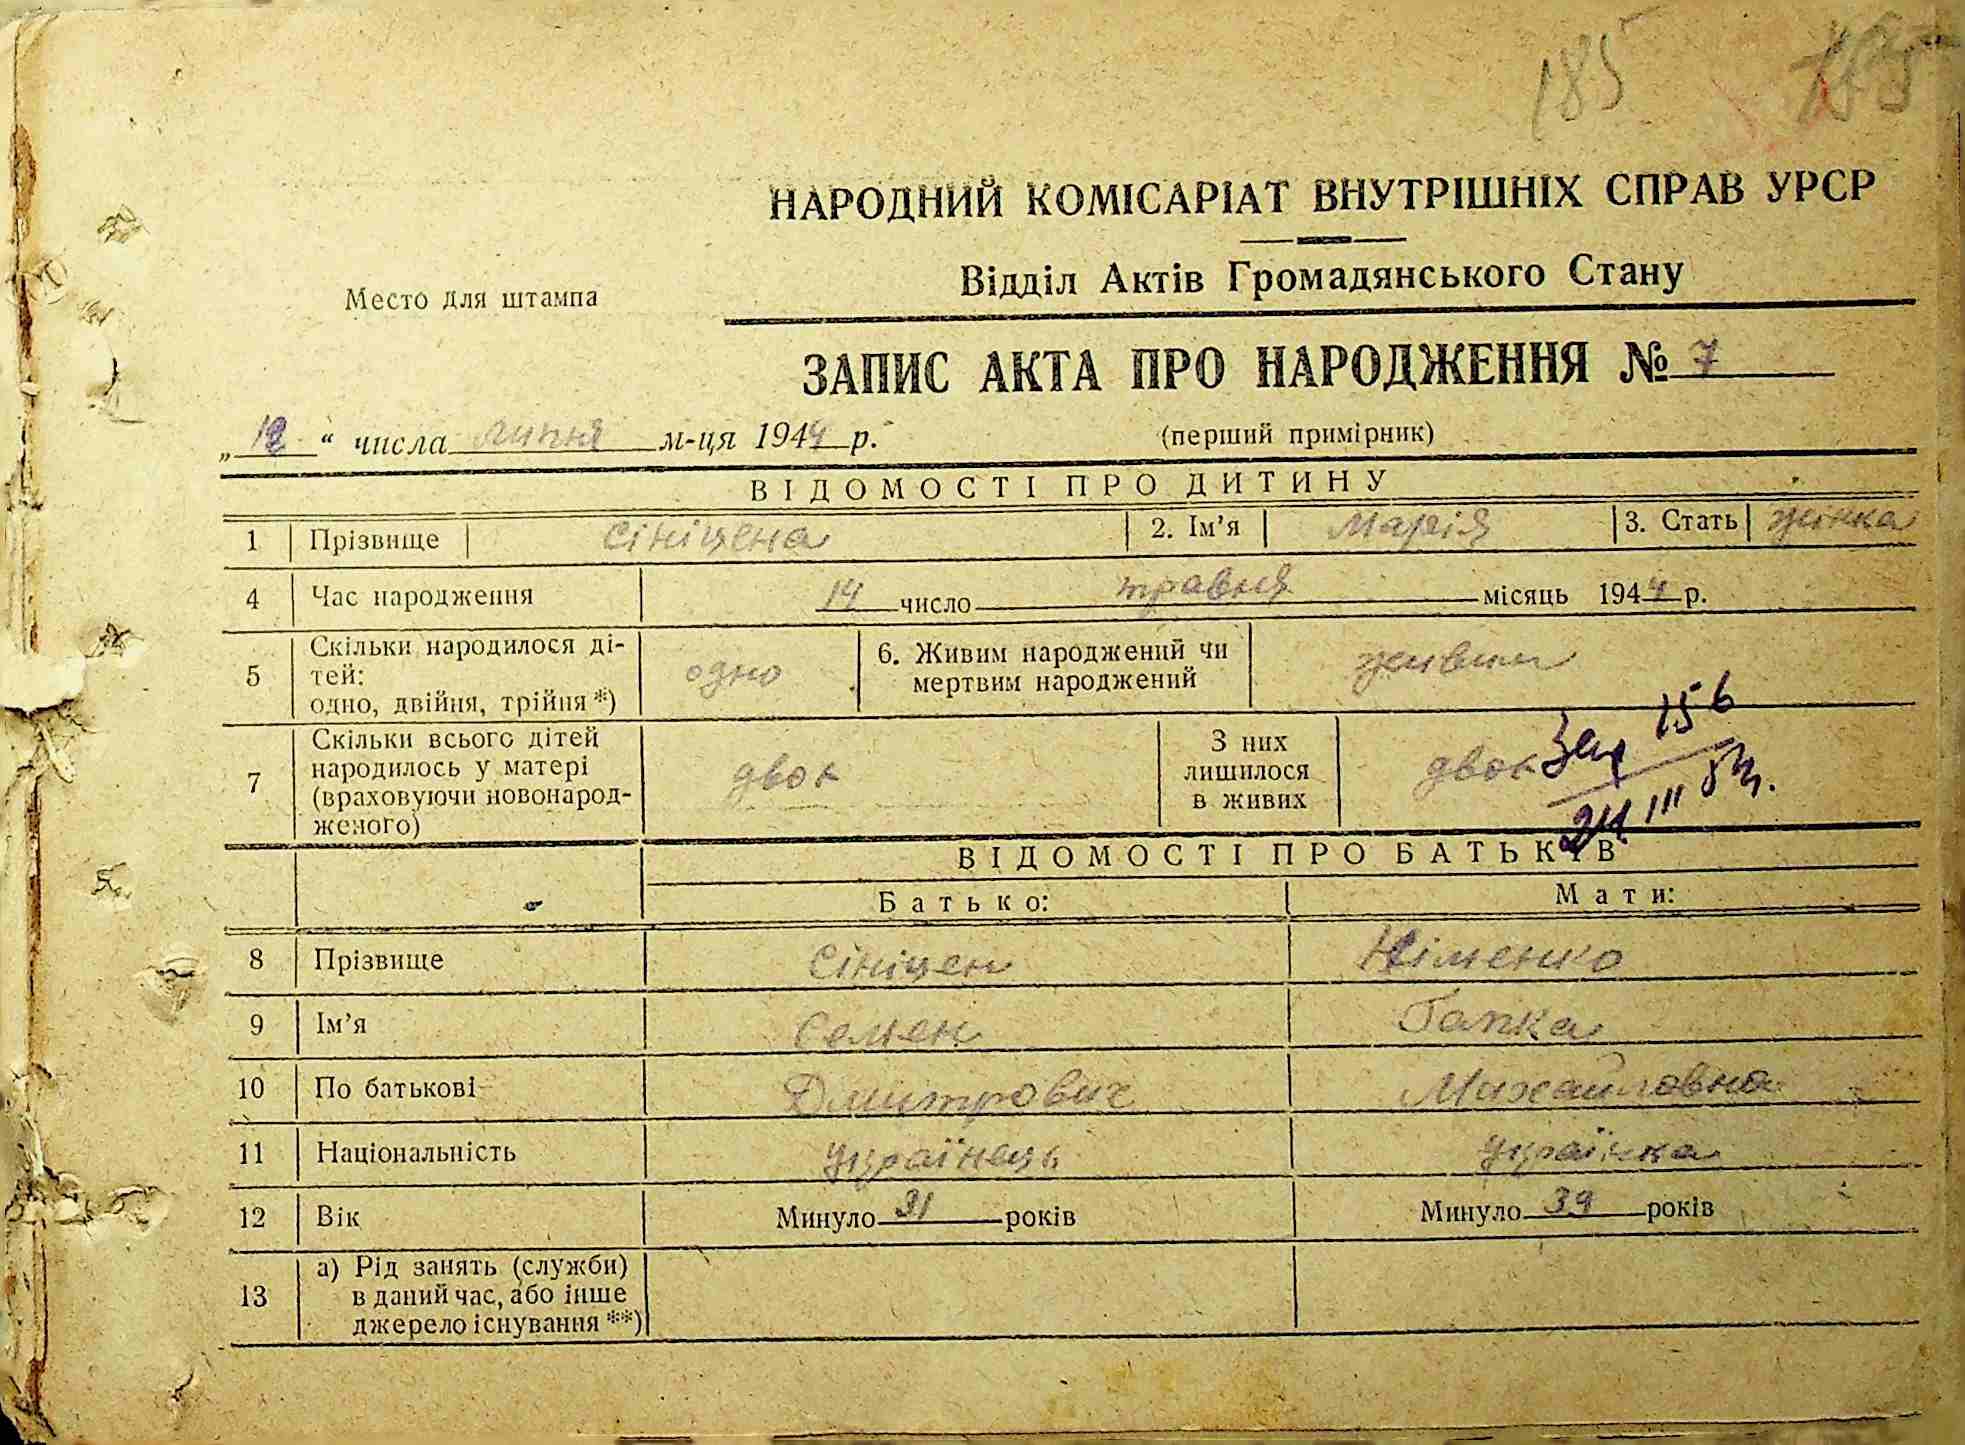 185
НАРОДНИЙ КОМІСАРІАТ ВНУТРІШНІХ СПРАВ УРСР
Відділ Актів Громадянського Стану
Место для штампа
ЗАПИС АКТА ПРО НАРОДЖЕННЯ № 7
„12“ числа липня м-ця 1944 р.
(перший примірник)
ВІДОМОСТІ ПРО ДИТИНУ
1 Прізвище Сініцена 2. Ім’я Марія 3. Стать жінка
4 Час народження 14 число травня місяць 1944 р.
5 Скільки народилося ді-
тей:
одно, двійня, трійня *) одно
6. Живим народжений чи
мертвим народжений живим
7 Скільки всього дітей
народилось у матері
(враховуючи новонарод-
женого) двох
З них
лишилося
в живих двох
156
ВІДОМОСТІ ПРО БАТЬКІВ
Батько: Мати:
8 Прізвище Сініцен Кіменко
9 Ім’я Семен Гапка
10 По батькові Дмитрович Михайловна
11 Національність українець українка
12 Вік Минуло 31 років Минуло 39 років
13 а) Рід занять (служби)
в даний час, або інше
джерело існування **)